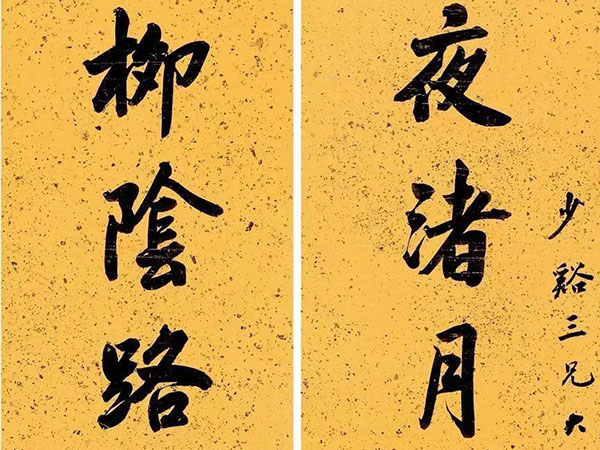 少谿三兄大
夜渚月
柳陰路